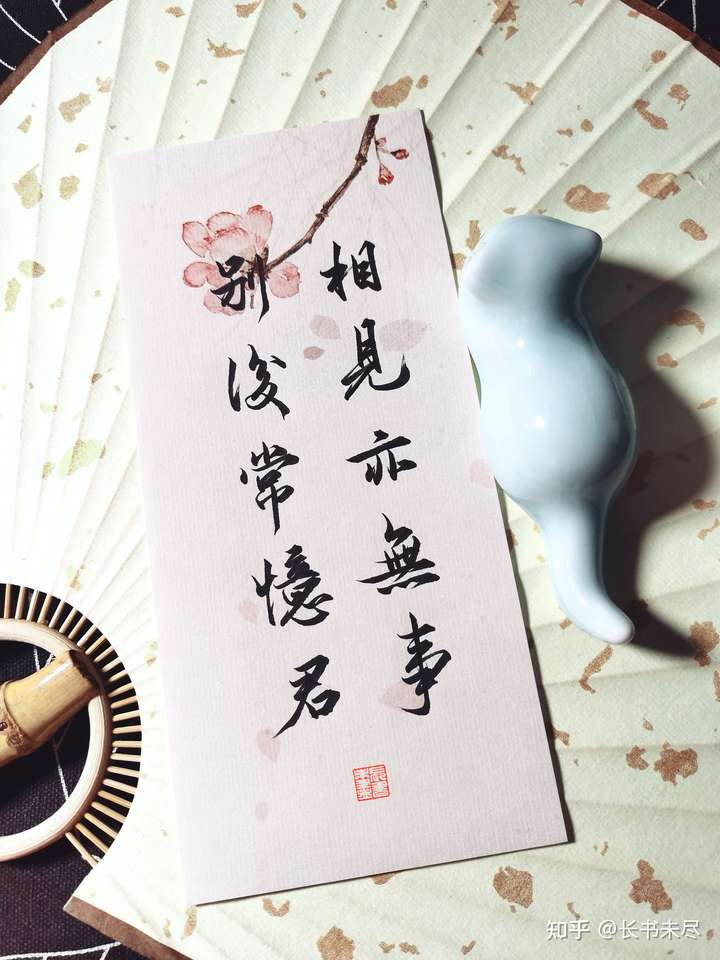 相見亦無事
別後常憶君
知乎 @长书未尽